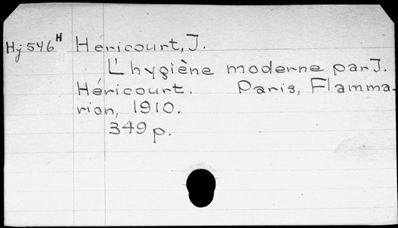 Hj546H Héricourt, J.
L'hygiène moderne par J.
Héricourt. Paris, Flamma-
rion, 1910.
349p.